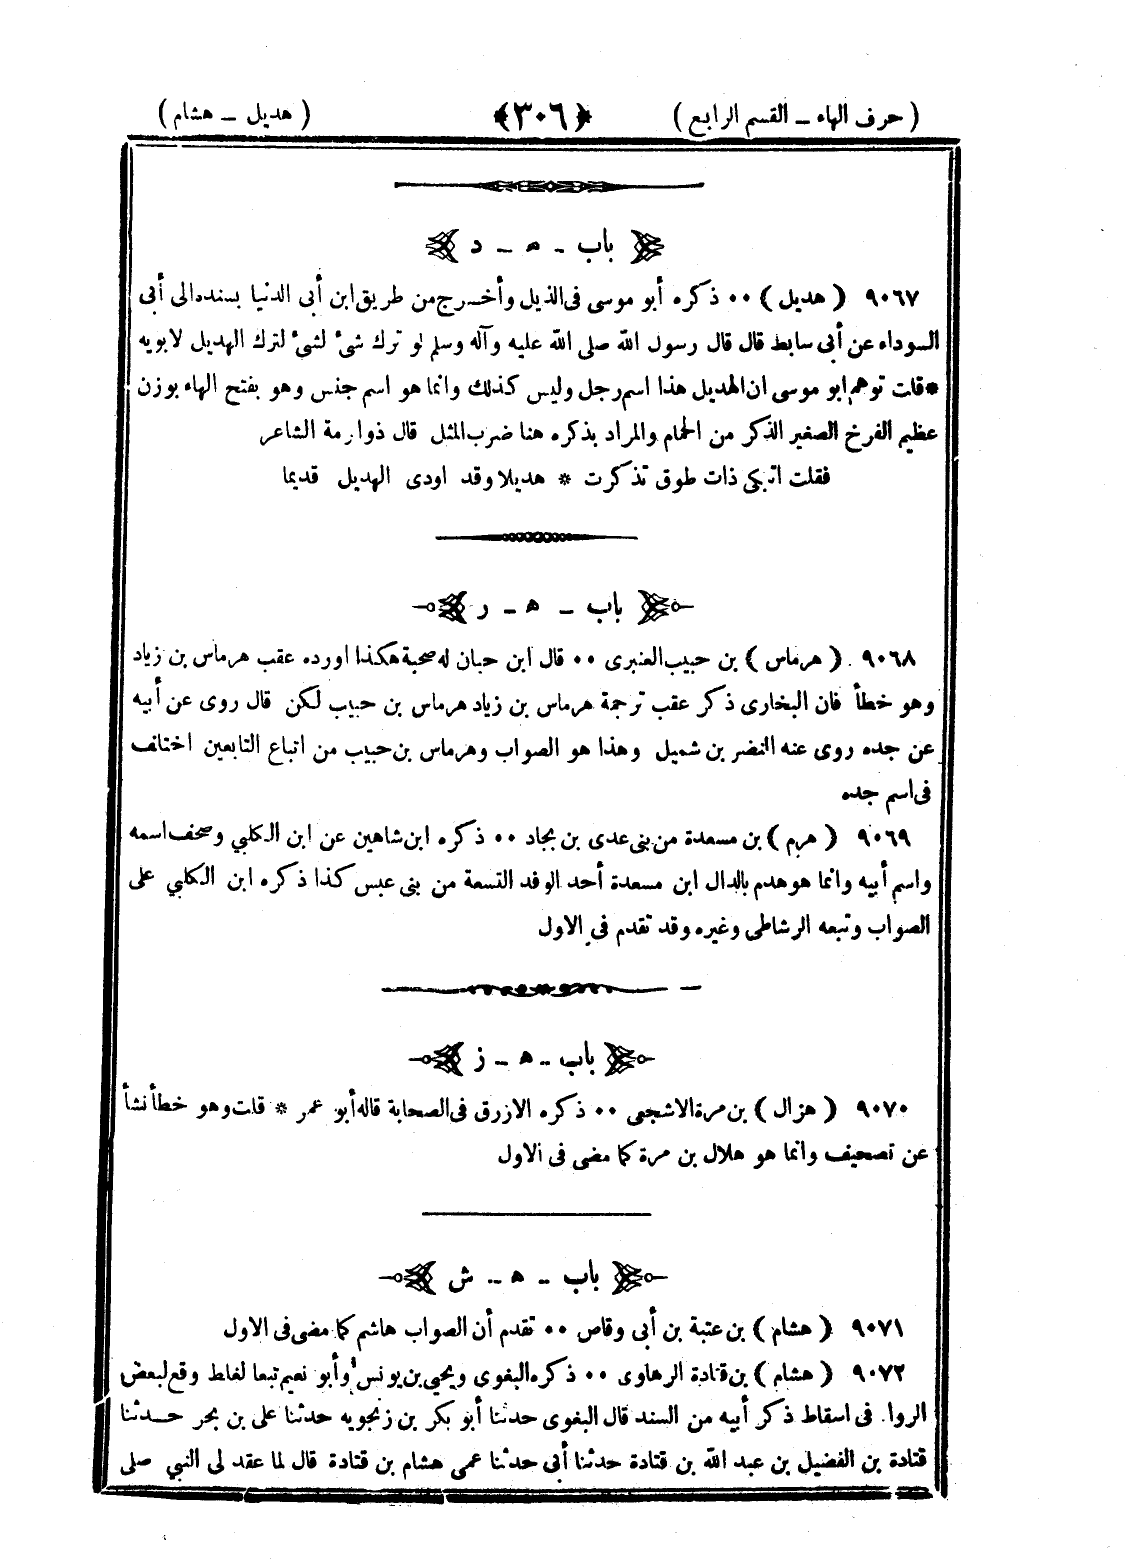 ( حرف الهاء – القسم الرابع ) ﴿٣٠٦﴾ ( هديل – هشام )
باب – ه – د
٩٠٦٧ ( هديل ) ٠٠ ذكره أبو موسى فى الذيل وأخـرج من طريق ابن أبى الدنيا بسنده الى أبى
السوداء عن أبى سابط قال قال رسول الله صلى الله عليه وآله وسلم لو ترك شئ لشئ لترك الهديل لابويه
*قلت توهم ابو موسى ان الهديل هذا اسم رجل وليس كذلك وانما هو اسم جنس وهو بفتح الهاء بوزن
عظيم الفرخ الصغير الذكر من الحمام والمراد بذكره هنا ضرب المثل قال ذوارمة الشاعر
فقلت اتبكى ذات طوق تذكرت * هديلا وقد اودى الهديل قديما
باب – ه – ر
٩٠٦٨ ( هرماس ) بن حبيب العنبرى ٠٠ قال ابن حبان له صحبة هكذا اورده عقب هرماس بن زياد
وهو خطأ فان البخارى ذكر عقب ترجمة هرماس بن زياد هرماس بن حبيب لكن قال روى عن أبيه
عن جده روى عنه النضر بن شميل وهذا هو الصواب وهرماس بن حبيب من اتباع التابعين اختلف
فى اسم جده
٩٠٦٩ ( هرم ) بن مسعدة من بنى عدى بن بجاد ٠٠ ذكره ابن شاهين عن ابن الكلبي وصحف اسمه
واسم أبيه وانما هو هدم بالدال ابن مسعدة أحد الوفد التسعة من بنى عبس كذا ذكره ابن الكلبي على
الصواب وتبعه الرشاطى وغيره وقد تقدم فى الاول
باب – ه – ز
٩٠٧٠ ( هزال ) بن مرة الاشجعى ٠٠ ذكره الازرق فى الصحابة قاله أبو عمر * قلت وهو خطأ نشأ
عن تصحيف وانما هو هلال بن مرة كما مضى فى الاول
باب – ه – ش
٩٠٧١ ( هشام ) بن عتبة بن أبى وقاص ٠٠ تقدم أن الصواب هاشم كما مضى فى الاول
٩٠٧٢ ( هشام ) بن قتادة الرهاوى ٠٠ ذكره البغوى ويحيى بن يونس وأبو نعيم تبعا لغلط وقع لبعض
الروا. فى اسقاط ذكر أبيه من السند قال البغوى حدثنا أبو بكر بن زنجويه حدثنا على بن بحر حـدثنا
قتادة بن الفضيل بن عبد الله بن قتادة حدثنا أبى حدثنا عمى هشام بن قتادة قال لما عقد لى النبي صلى